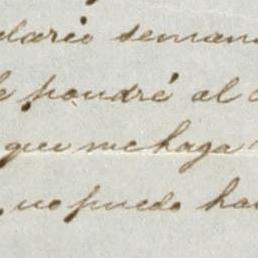 dario seman
le pondré al
que me haga
, no puedo ha